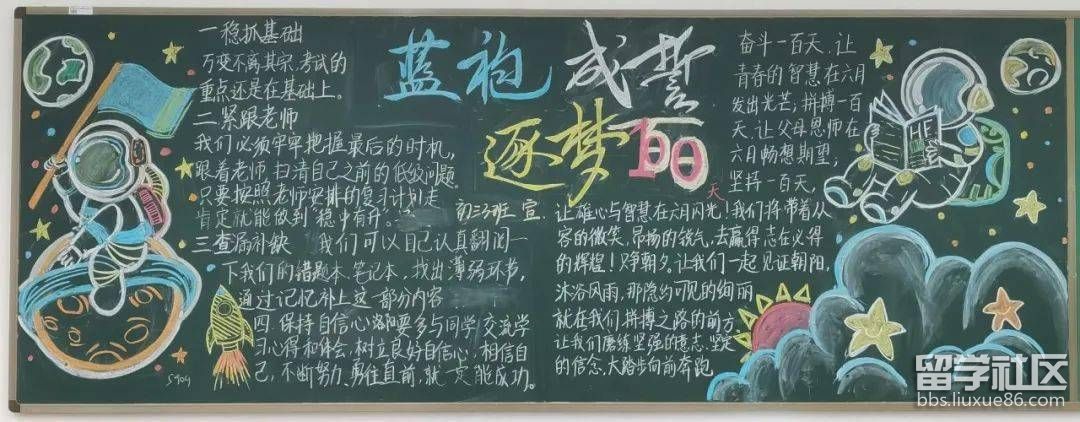 一稳抓基础
万变不离其宗,考试的
重点还是在基础上。
二紧跟老师
我们必须牢牢把握最后的时机,
跟着老师,扫清自己之前的低级问题.
只要按照老师安排的复习计划走
肯定就能做到"稳中有升"。
三查漏补缺 我们可以自己认真翻阅一
下我们的错题本.笔记本.找出薄弱环节,
通过记忆补上这一部分内容
四.保持自信心 要多与同学交流学
习心得和体会,树立良好自信心.相信自
己,不断努力.勇往直前.就一定能成功。
S904
蓝袍 成誓
逐梦100天
初三3班 宣
奋斗一百天,让
青春的智慧在六月
发出光芒;拼搏一百
天,让父母恩师在
六月畅想期望,
坚持一百天,
让雄心与智慧在六月闪光!我们将带着从
容的微笑,昂扬的锐气,去赢得志在必得
的辉煌!只争朝夕。让我们一起见证朝阳,
沐浴风雨,那隐约可见的绚丽
就在我们拼搏之路的前方,
让我们磨练坚强的意志,坚定
的信念,大踏步向前奔跑
留学社区
bbs.liuxue86.com